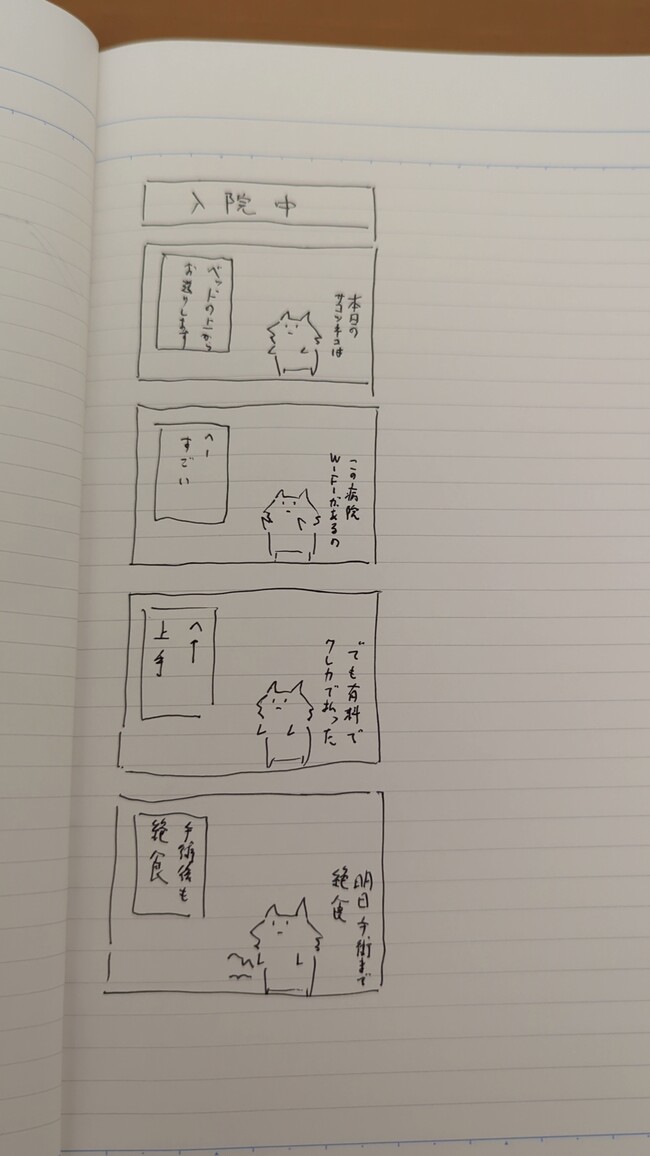 入院中
本日の
サコツネコは
ベッドの上から
お送りします
この病院
W-Fiーがあるの
へー
すごい
でも有料で
クレカで払った
へー
上手
明日手術まで
絶食
手術後も
絶食